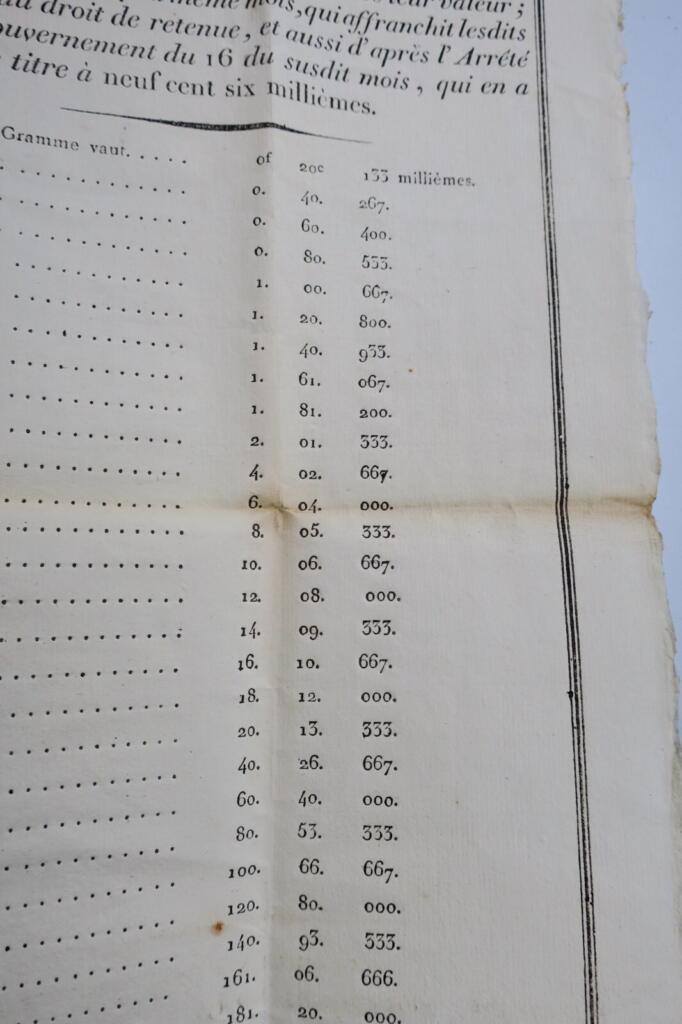 valeur ;
même mois, qui affranchit lesdits
droit de retenue, et aussi d'après l'Arrêté
ouvernement du 16 du susdit mois, qui en a
titre à neuf cent six millièmes.
Gramme vaut..... 0f 20c 133 millièmes.
0. 40. 267.
0. 60. 400.
0. 80. 533.
1. 00. 667.
1. 20. 800.
1. 40. 933.
1. 61. 067.
1. 81. 200.
2. 01. 333.
4. 02. 667.
6. 04. 000.
8. 05. 333.
10. 06. 667.
12. 08. 000.
14. 09. 333.
16. 10. 667.
18. 12. 000.
20. 13. 333.
40. 26. 667.
60. 40. 000.
80. 53. 333.
100. 66. 667.
120. 80. 000.
140. 93. 333.
161. 06. 666.
181. 20. 000.